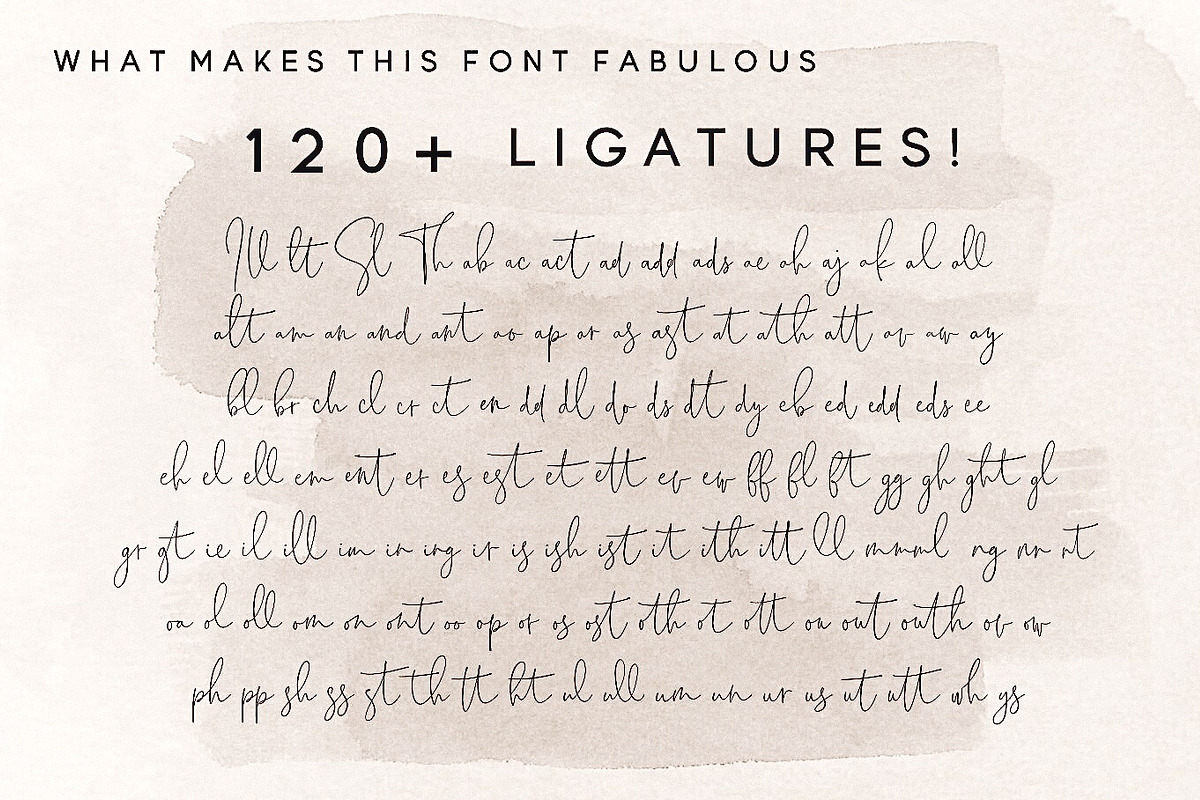 WHAT MAKES THIS FONT FABULOUS
120+ LIGATURES!
Th ab ac act ad add ads ae ah aj ak al all
alt am an and ant ao ap ar as ast at ath att av aw ay
bl br ch cl cr ct en dd dl do ds dt dy eb ed edd eds ee
eh el ell em ent er es est et ett ev ew ff fl ft gg gh ght gl
gr gt ie il ill im in ing ir is ish ist it ith itt ll ng nn nt
oa ol oll om on ont oo op or os ost oth ot ott ou out outh ov ow
ph pp sh ss st th tt ht ul ull um un ur us ut utt wh ys